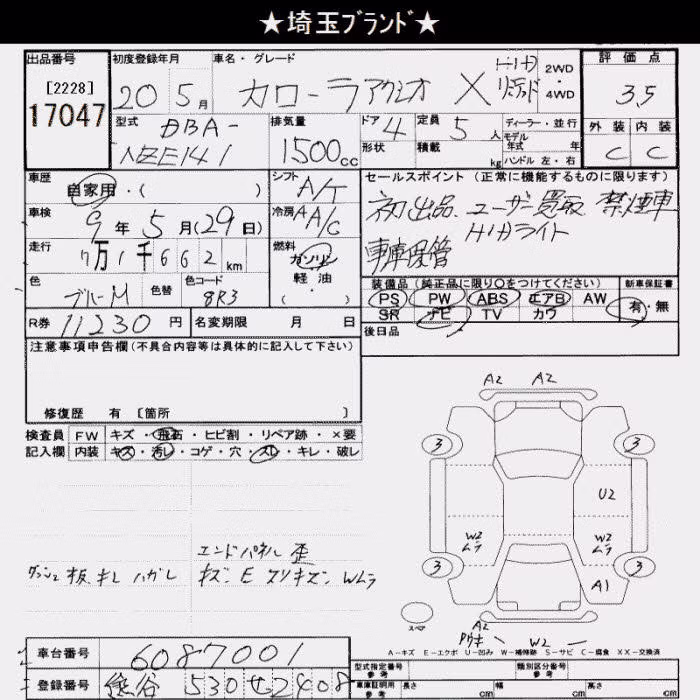 ★埼玉ブランド★
出品番号 初度登録年月 車名・グレード HID 2WD 評価点
[2228] 20 5月 カローラアクシオ X リミテッド ・4WD 3.5
17047
型式 DBA- 排気量 ドア 4 定員 5人 ディーラー・並行 外装 内装
NZE141 1500cc 形状 積載 kg モデル年式 年 C C
ハンドル 左・右
車歴 シフト セールスポイント(正常に機能するものに限ります)
自家用・( ) A/T 初出品、ユーザー買取 禁煙車
車検 冷房 HIDライト
9年 5月(29日) AA/C 車庫保管
走行 燃料
7万1千662km ガソリン
軽油
・( )
色 色替 色コード 装備品(純正品に限り○をつけてください) 新車保証書
ブルーM 8R3 PS PW ABS エアB AW 有・無
SR ナビ TV カワ
R券 11230円 名変期限 月 日 後日品
注意事項申告欄(不具合内容等は具体的に記入して下さい)
修復歴 有 [箇所 ]
検査員 FW キズ・飛石・ヒビ割・リペア跡・×要
記入欄 内装 キズ・汚レ・コゲ・穴・スレ・キレ・破レ
A2 A2
3 3
U2
W2 ムラ W2 ムラ
3 3
A1
エンドパネル 歪
ダッシュ板 キレ ハガレ キズ、E スリキズ、Wムラ
スペア A2 W2
A-キズ E-エクボ U-凹み W-補修跡 S-サビ C-腐食 XX-交換済
車台番号 6087001 型式指定番号 参考 類別区分番号 参考
登録番号 熊谷 530 せ 2408 車庫証明用 参考 長さ cm 幅 cm 高さ cm